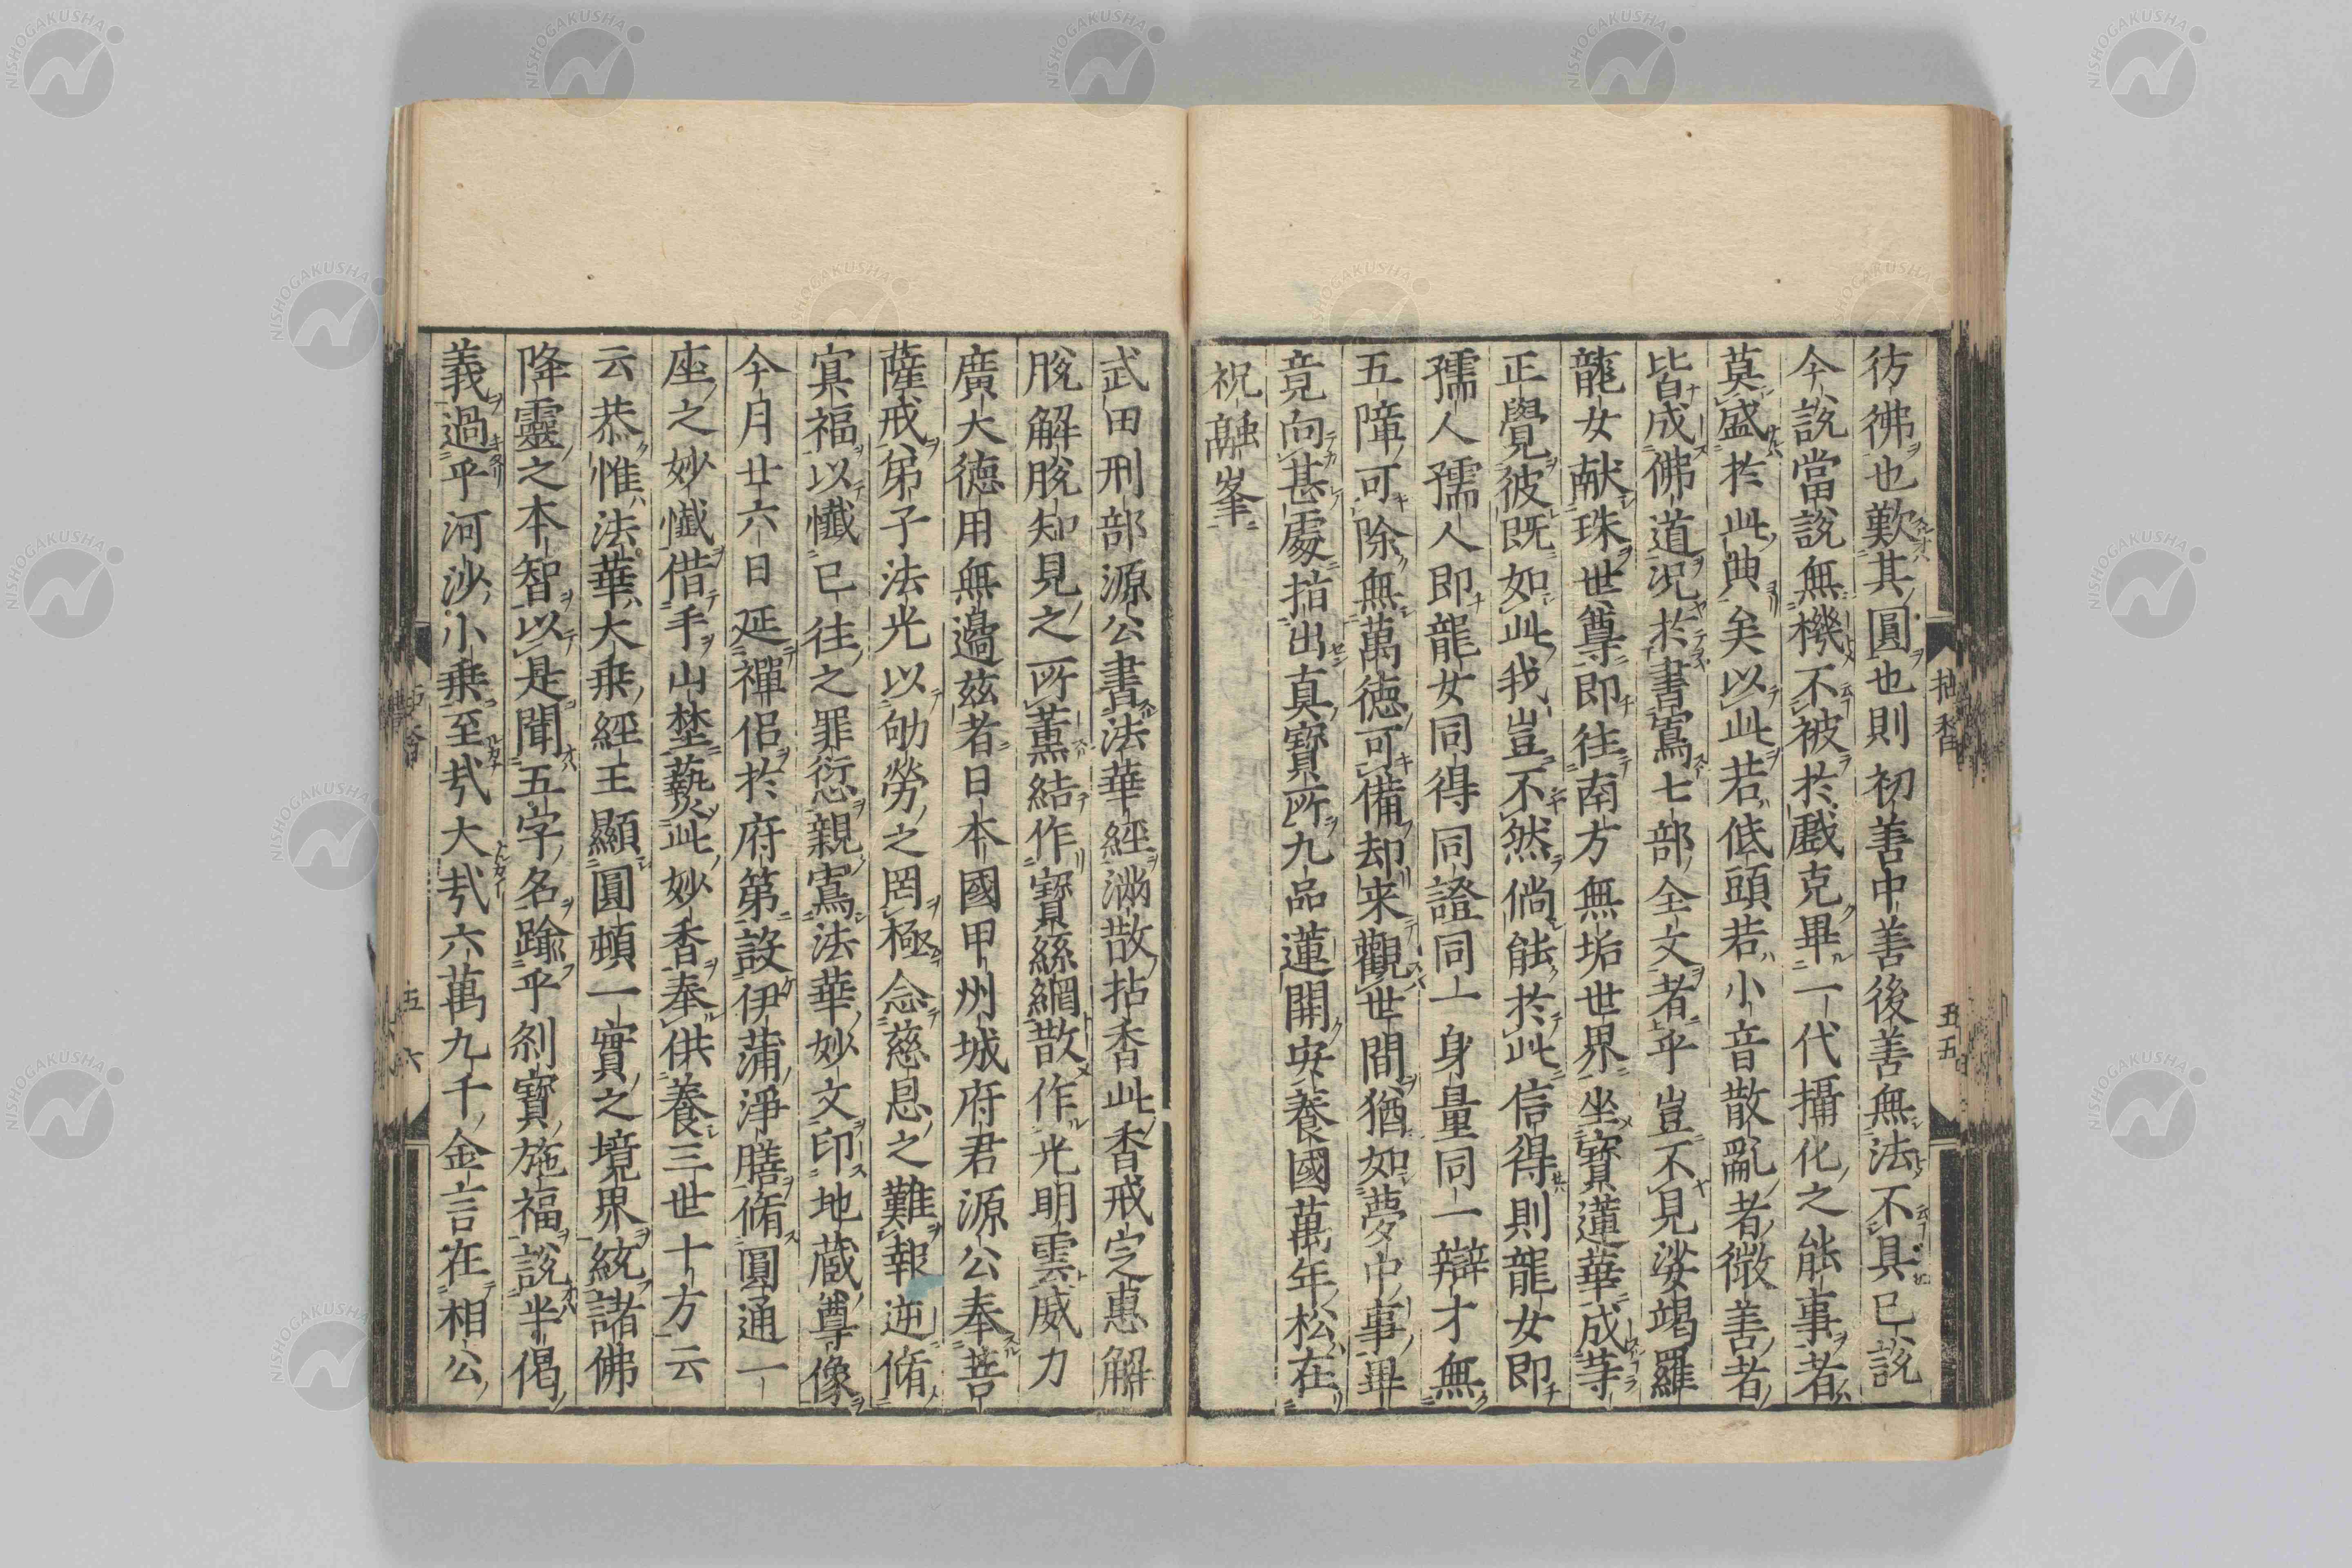 彷彿也歎其圓也則初善中善後善無法不具已說
今說當說無機不被於戲克畢一代攝化之能事者
莫盛於此典矣以此若低頭若小音散亂者微善者
皆成佛道况於書寫七部全文者乎豈不見娑竭羅
龍女献珠世尊即往南方無垢世界坐寶蓮華成等
正覺彼既如此我豈不然倘能於此信得則龍女即
孺人孺人即龍女同得同證同一身量同一辯才無
五障可除無萬德可備却来觀世間猶如夢中事畢
竟向甚處指出真寶所九品蓮開安養國萬年松在
祝融峯
拈香
五五
武田刑部源公書法華經滿散拈香此香戒定惠解
脫解脫知見之所薰結作寶絲網散作光明雲威力
廣大德用無邊茲者日本國甲州城府君源公奉菩
薩戒弟子法光以劬勞之罔極念慈恩之難報逆脩
冥福以懺已往之罪愆親寫法華妙文印地蔵尊像
今月廿六日延禪侶於府第設伊蒲淨膳脩圓通一
座之妙懺借手山埜爇此妙香奉供養三世十方云
云恭惟法華大乗經王顯圓頓一實之境界統諸佛
降靈之本智以是聞五字名踰乎刹寶施福說半偈
義過乎河沙小乗至哉大哉六萬九千金言在相公
五六
NISHOGAKUSHA